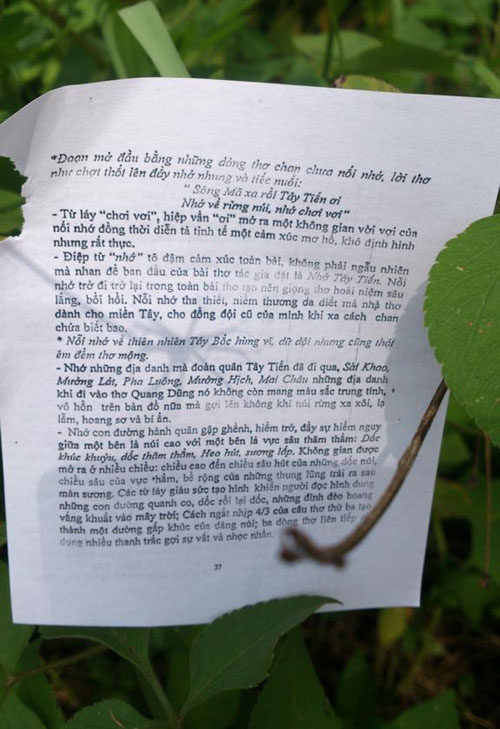 *Đoạn mở đầu bằng những dòng thơ chan chưa nỗi nhớ, lời thơ
như chợt thốt lên đầy nhớ nhung và tiếc nuối:
" Sông Mã xa rồi Tây Tiến ơi
Nhớ về rừng núi, nhớ chơi vơi"
- Từ láy "chơi vơi", hiệp vần "ơi" mở ra một không gian vời vợi của
nỗi nhớ đồng thời diễn tả tinh tế một cảm xúc mơ hồ, khó định hình
nhưng rất thực.
- Điệp từ "nhớ" tô đậm cảm xúc toàn bài, không phải ngẫu nhiên
mà nhan đề ban đầu của bài thơ tác giả đặt là Nhớ Tây Tiến. Nỗi
nhớ trở đi trở lại trong toàn bài thơ tạo nên giọng thơ hoài niệm sâu
lắng, bồi hồi. Nỗi nhớ tha thiết, niềm thương da diết mà nhà thơ
dành cho miền Tây, cho đồng đội cũ của mình khi xa cách chan
chứa biết bao.
* Nỗi nhớ về thiên nhiên Tây Bắc hùng vĩ, dữ dội nhưng cũng thật
êm đềm thơ mộng.
- Nhớ những địa danh mà đoàn quân Tây Tiến đã đi qua, Sài Khao,
Mường Lát, Pha Luông, Mường Hịch, Mai Châu những địa danh
khi đi vào thơ Quang Dũng nó không còn mang màu sắc trung tính,
vô hồn trên bản đồ nữa mà gợi lên không khí núi rừng xa xôi, lạ
lẫm, hoang sơ và bí ẩn.
- Nhớ con đường hành quân gập ghềnh, hiểm trở, đầy sự hiểm nguy
giữa một bên là núi cao với một bên là vực sâu thăm thẳm: Dốc
khúc khuỷu, dốc thăm thẳm, Heo hút, sương lấp. Không gian được
mở ra ở nhiều chiều: chiều cao đến chiều sâu hút của những dốc núi,
chiều sâu của vực thẳm, bề rộng của những thung lũng trải ra sau
màn sương. Các từ láy giàu sức tạo hình khiến người đọc hình dung
những con đường quanh co, dốc rồi lại dốc, những đỉnh đèo hoang
vắng khuất vào mây trời; Cách ngắt nhịp 4/3 của câu thơ thứ ba tạo
thành một đường gấp khúc của dáng núi; ba dòng thơ liên tiếp sử
dụng nhiều thanh trắc gợi sự vất vả nhọc nhằn.
37